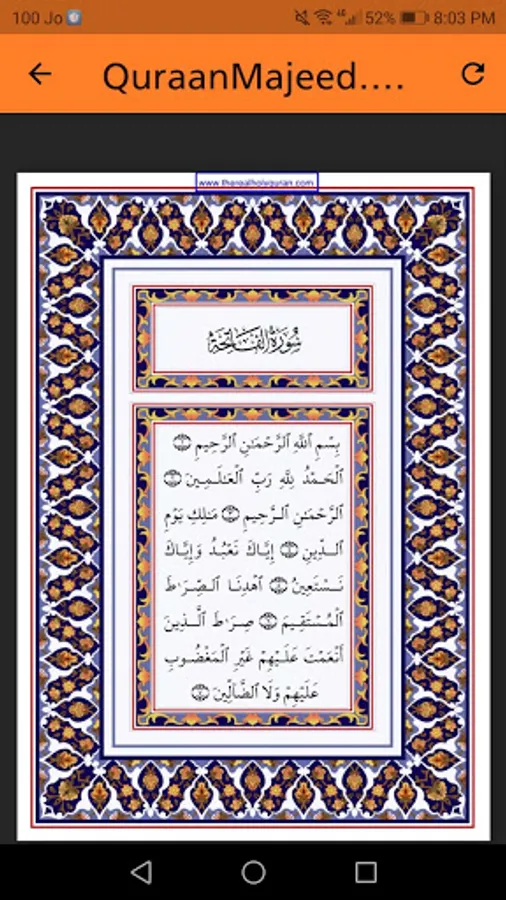 100 Jo
4G 52% 8:03 PM
QuraanMajeed....
www.therealholyquran.com
سُورَةُ الفَاتِحَة
بِسْمِ ٱللَّهِ ٱلرَّحْمَٰنِ ٱلرَّحِيمِ
ٱلْحَمْدُ لِلَّهِ رَبِّ ٱلْعَٰلَمِينَ
ٱلرَّحْمَٰنِ ٱلرَّحِيمِ مَٰلِكِ يَوْمِ
ٱلدِّينِ إِيَّاكَ نَعْبُدُ وَإِيَّاكَ
نَسْتَعِينُ ٱهْدِنَا ٱلصِّرَٰطَ
ٱلْمُسْتَقِيمَ صِرَٰطَ ٱلَّذِينَ
أَنْعَمْتَ عَلَيْهِمْ غَيْرِ ٱلْمَغْضُوبِ
عَلَيْهِمْ وَلَا ٱلضَّآلِّينَ